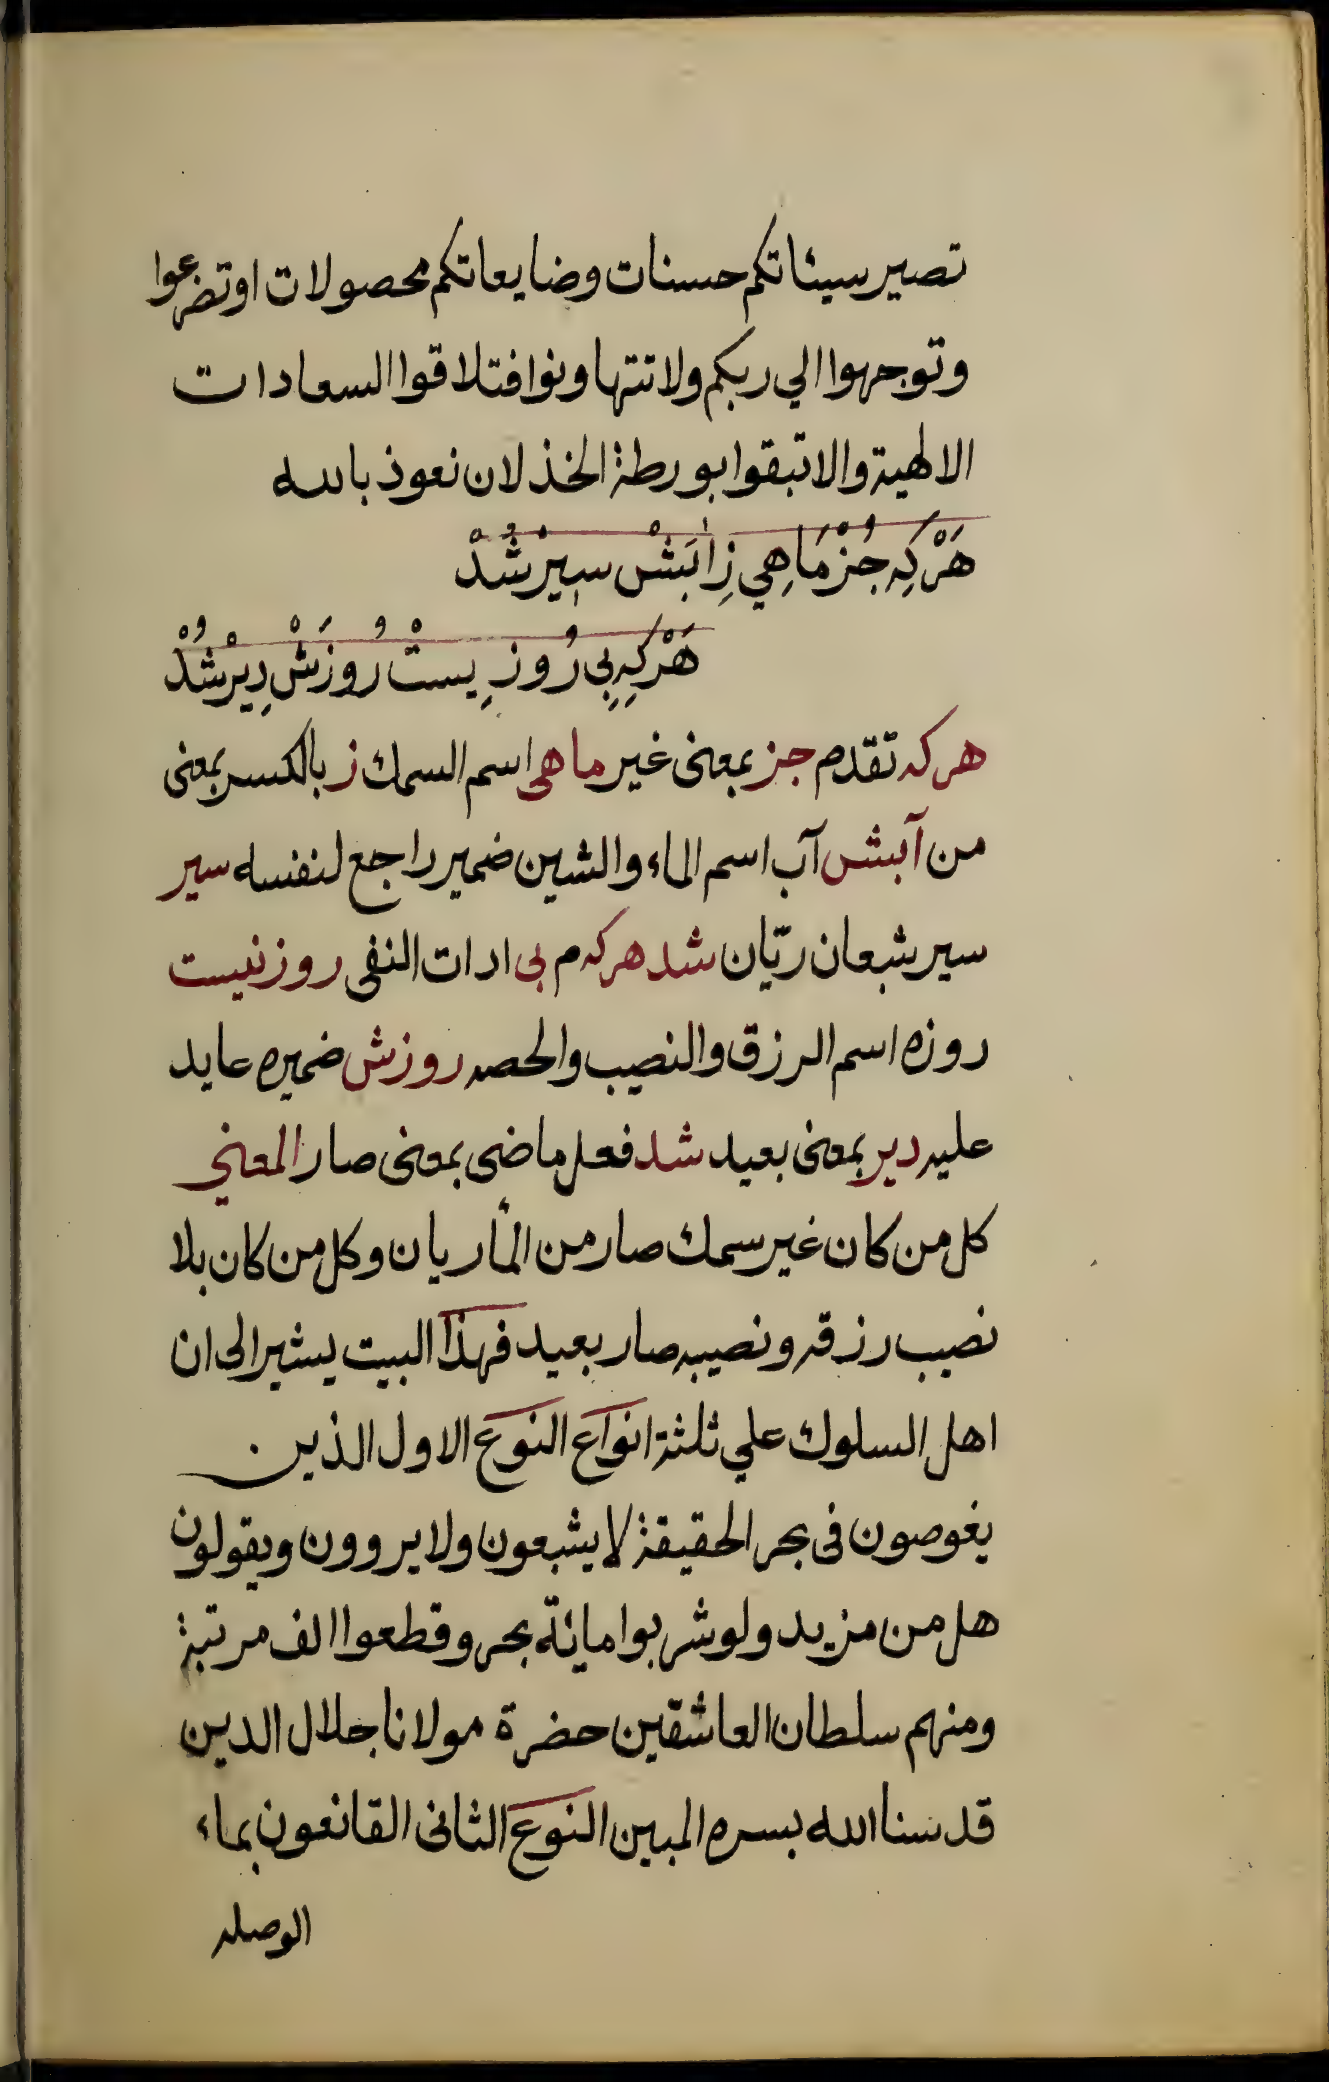 تصير سيئاتكم حسنات وضايعاتكم محصولات او تضرعوا
وتوجهوا الي ربكم ولا تتهاونوا فتلاقوا السعادات
الالهية والا تبقوا بورطة الخذلان نعوذ بالله
هَرْكِه جُزْ مَاهِي زِاٰبَشْ سِيرْ شُدْ
هَرْكِه بِي رُوزِيستْ رُوزَشْ دِيرْ شُدْ
هركه تقدم جز بمعنى غير ماهى اسم السمك ز بالكسر بمعنى
من آبش آب اسم الماء والشين ضمير راجع لنفسه سير
سير شبعان ريّان شد هركه م بى ادات النفى روزنيست
روزه اسم الرزق والنصيب والحصه روزش ضميره عايد
عليه دير بمعنى بعيد شد فعل ماضى بمعنى صار المعني
كل من كان غير سمك صار من المأ ريان وكل من كان بلا
نصيب رزقه ونصيبه صار بعيد فهذا البيت يشير الى ان
اهل السلوك علي ثلثة انواع النوع الاول الذين
يغوصون فى بحر الحقيقة لا يشبعون ولا يروون ويقولون
هل من مزيد ولو شربوا مائة بحر وقطعوا الف مرتبة
ومنهم سلطان العاشقين حضرة مولانا جلال الدين
قدسنا الله بسره المبين النوع الثانى القانعون بماء
الوصله